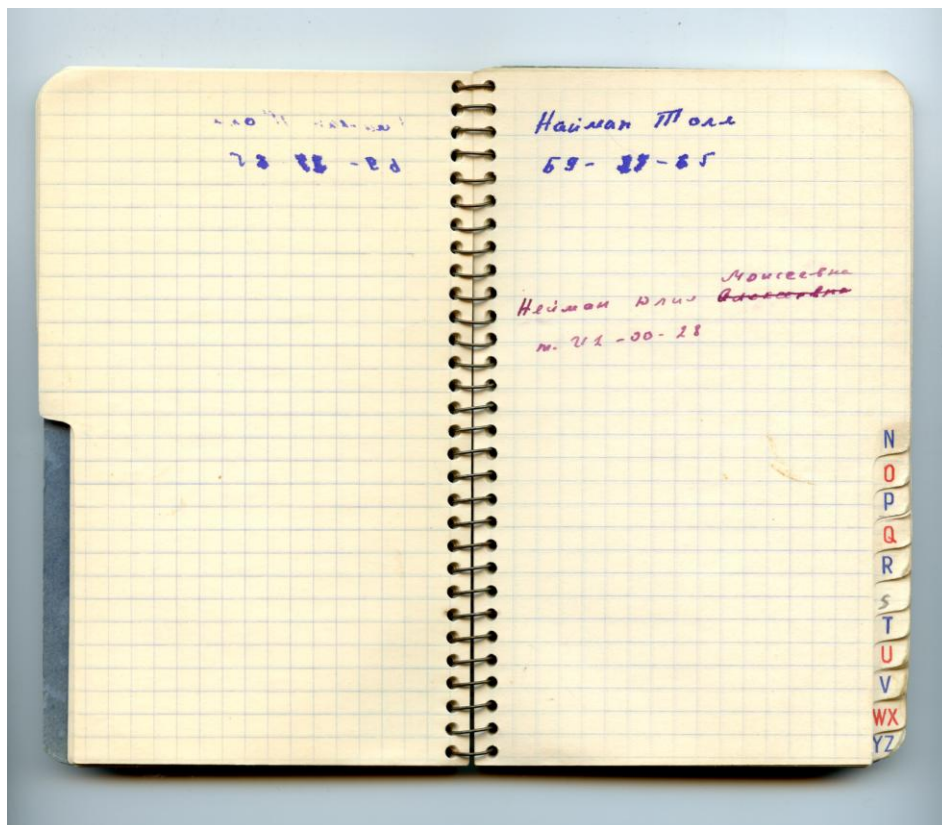 Найман Толя
Моисеевна
Нейман Юлия Алексеевна
N
O
P
Q
R
S
T
U
V
WX
YZ